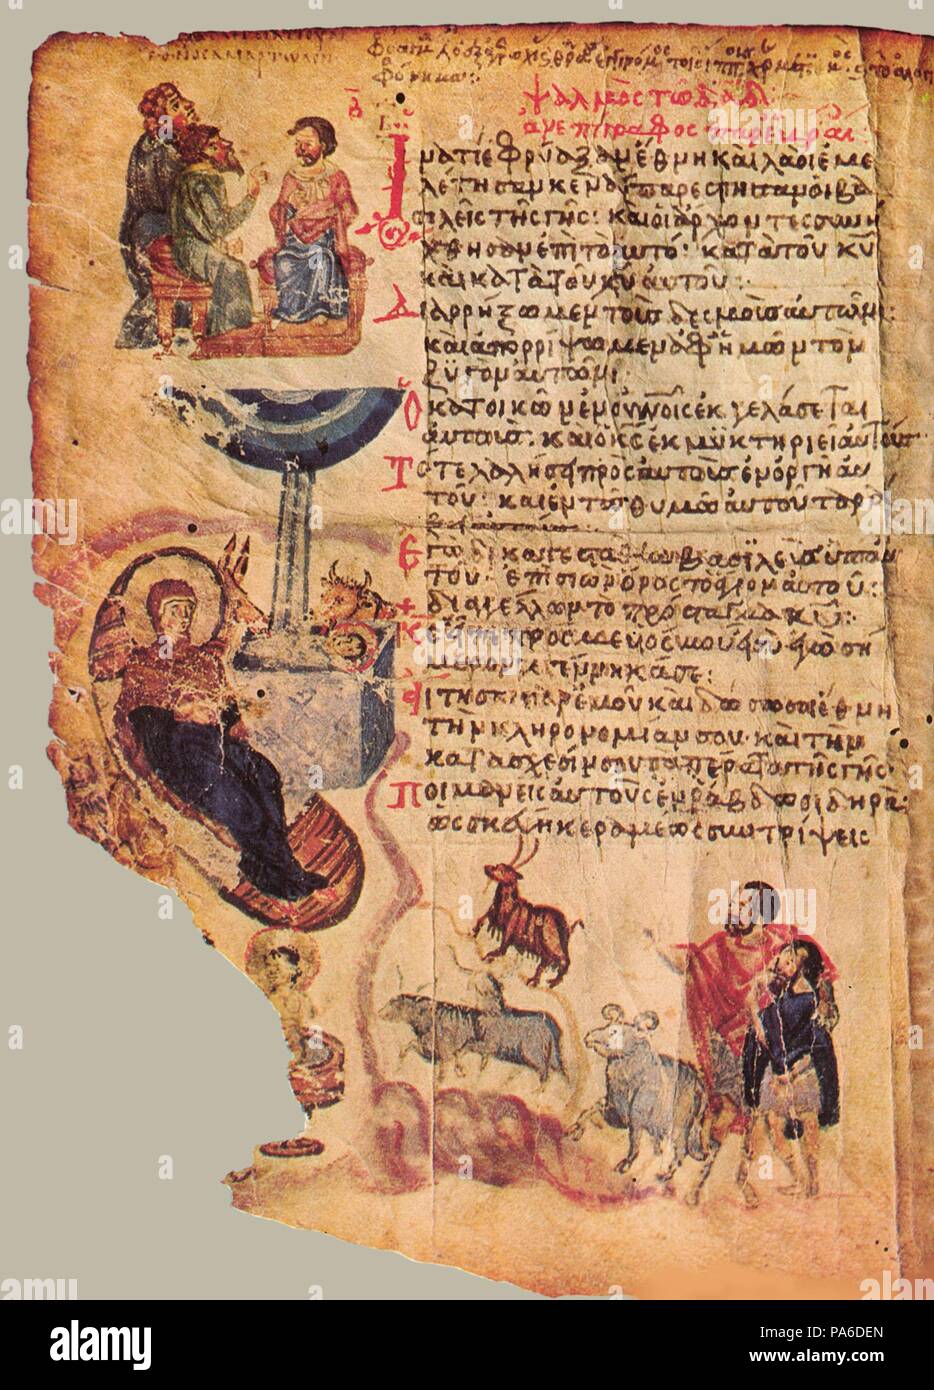 ψαλμὸς τῷ δᾱδ
ἀνεπίγραφος παρ' ἑβραί
Ἱνατί ἐφρύαξαν ἔθνη καὶ λαοὶ ἐμε
λέτησαν κενά: παρέστησαν οἱ βα
σιλεῖς τῆς γῆς: καὶ οἱ ἄρχοντες συνή
χθησαν ἐπὶ τὸ αὐτό: κατὰ τοῦ κῡ
καὶ κατὰ τοῦ χῡ αὐτοῦ:
Διαρρήξωμεν τοὺς δεσμοὺς αὐτῶν:
καὶ ἀπορρίψωμεν ἀφ' ἡμῶν τὸν
ζυγὸν αὐτῶν:
Ὁ κατοικῶν ἐν οὐνοῖς ἐκγελάσεται
αὐτούς: καὶ ὁ κς ἐκμυκτηριεῖ αὐτούς
Τότε λαλήσει πρὸς αὐτοὺς ἐν ὀργῇ αὐ
τοῦ: καὶ ἐν τῷ θυμῷ αὐτοῦ ταρά
ξει αὐτούς:
Ἐγὼ δὲ κατεστάθην βασιλεὺς ὑπ' αὐ
τοῦ: ἐπὶ σιὼν ὄρος τὸ ἅγιον αὐτοῦ:
διαγγέλλων τὸ πρόσταγμα κῡ:
Κς εἶπεν πρός με υἱός μου εἶ σύ ἐγὼ σή
μερον γεγέννηκά σε:
Αἴτησαι παρ' ἐμοῦ καὶ δώσω σοι ἔθνη
τὴν κληρονομίαν σου· καὶ τὴν
κατάσχεσίν σου τὰ πέρατα τῆς γῆς:
Ποιμανεῖς αὐτοὺς ἐν ῥάβδῳ σιδηρᾷ:
ὡς σκεύη κεραμέως συντρίψεις
alamy
Image ID: PA6DEN
www.alamy.com